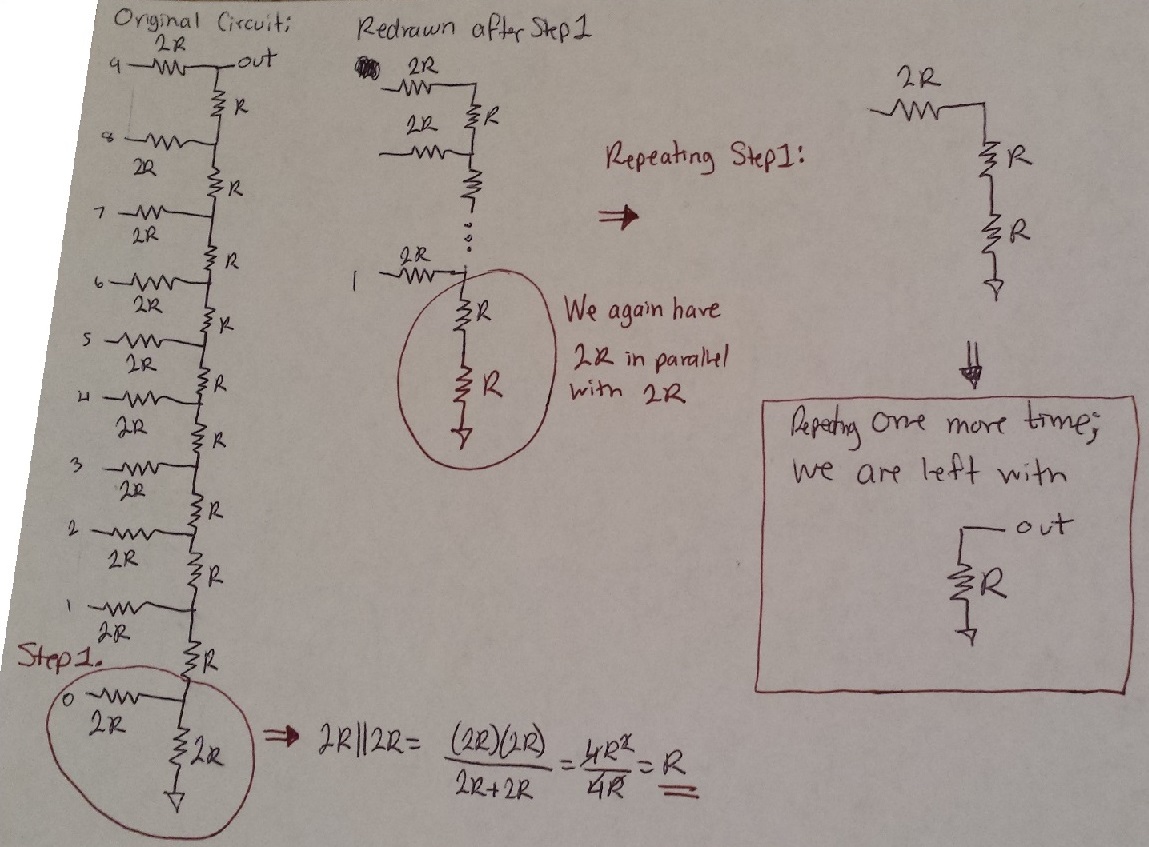 Original Circuit:
2R
9
out
R
8
2R
R
7
2R
R
6
2R
R
5
2R
R
4
2R
R
3
2R
R
2
2R
R
1
2R
R
Step 1.
0
2R
2R
⇒ 2R||2R = (2R)(2R) / 2R+2R = 4R² / 4R = R
Redrawn after Step 1
2R
R
2R
1
2R
R
R
We again have
2R in parallel
with 2R
Repeating Step 1:
⇒
2R
R
R
⇓
Repeating one more time;
we are left with
out
R